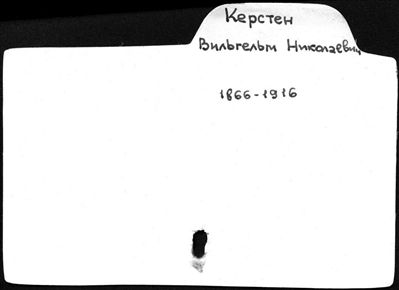 Керстен
Вильгельм Николаевич
1866-1916